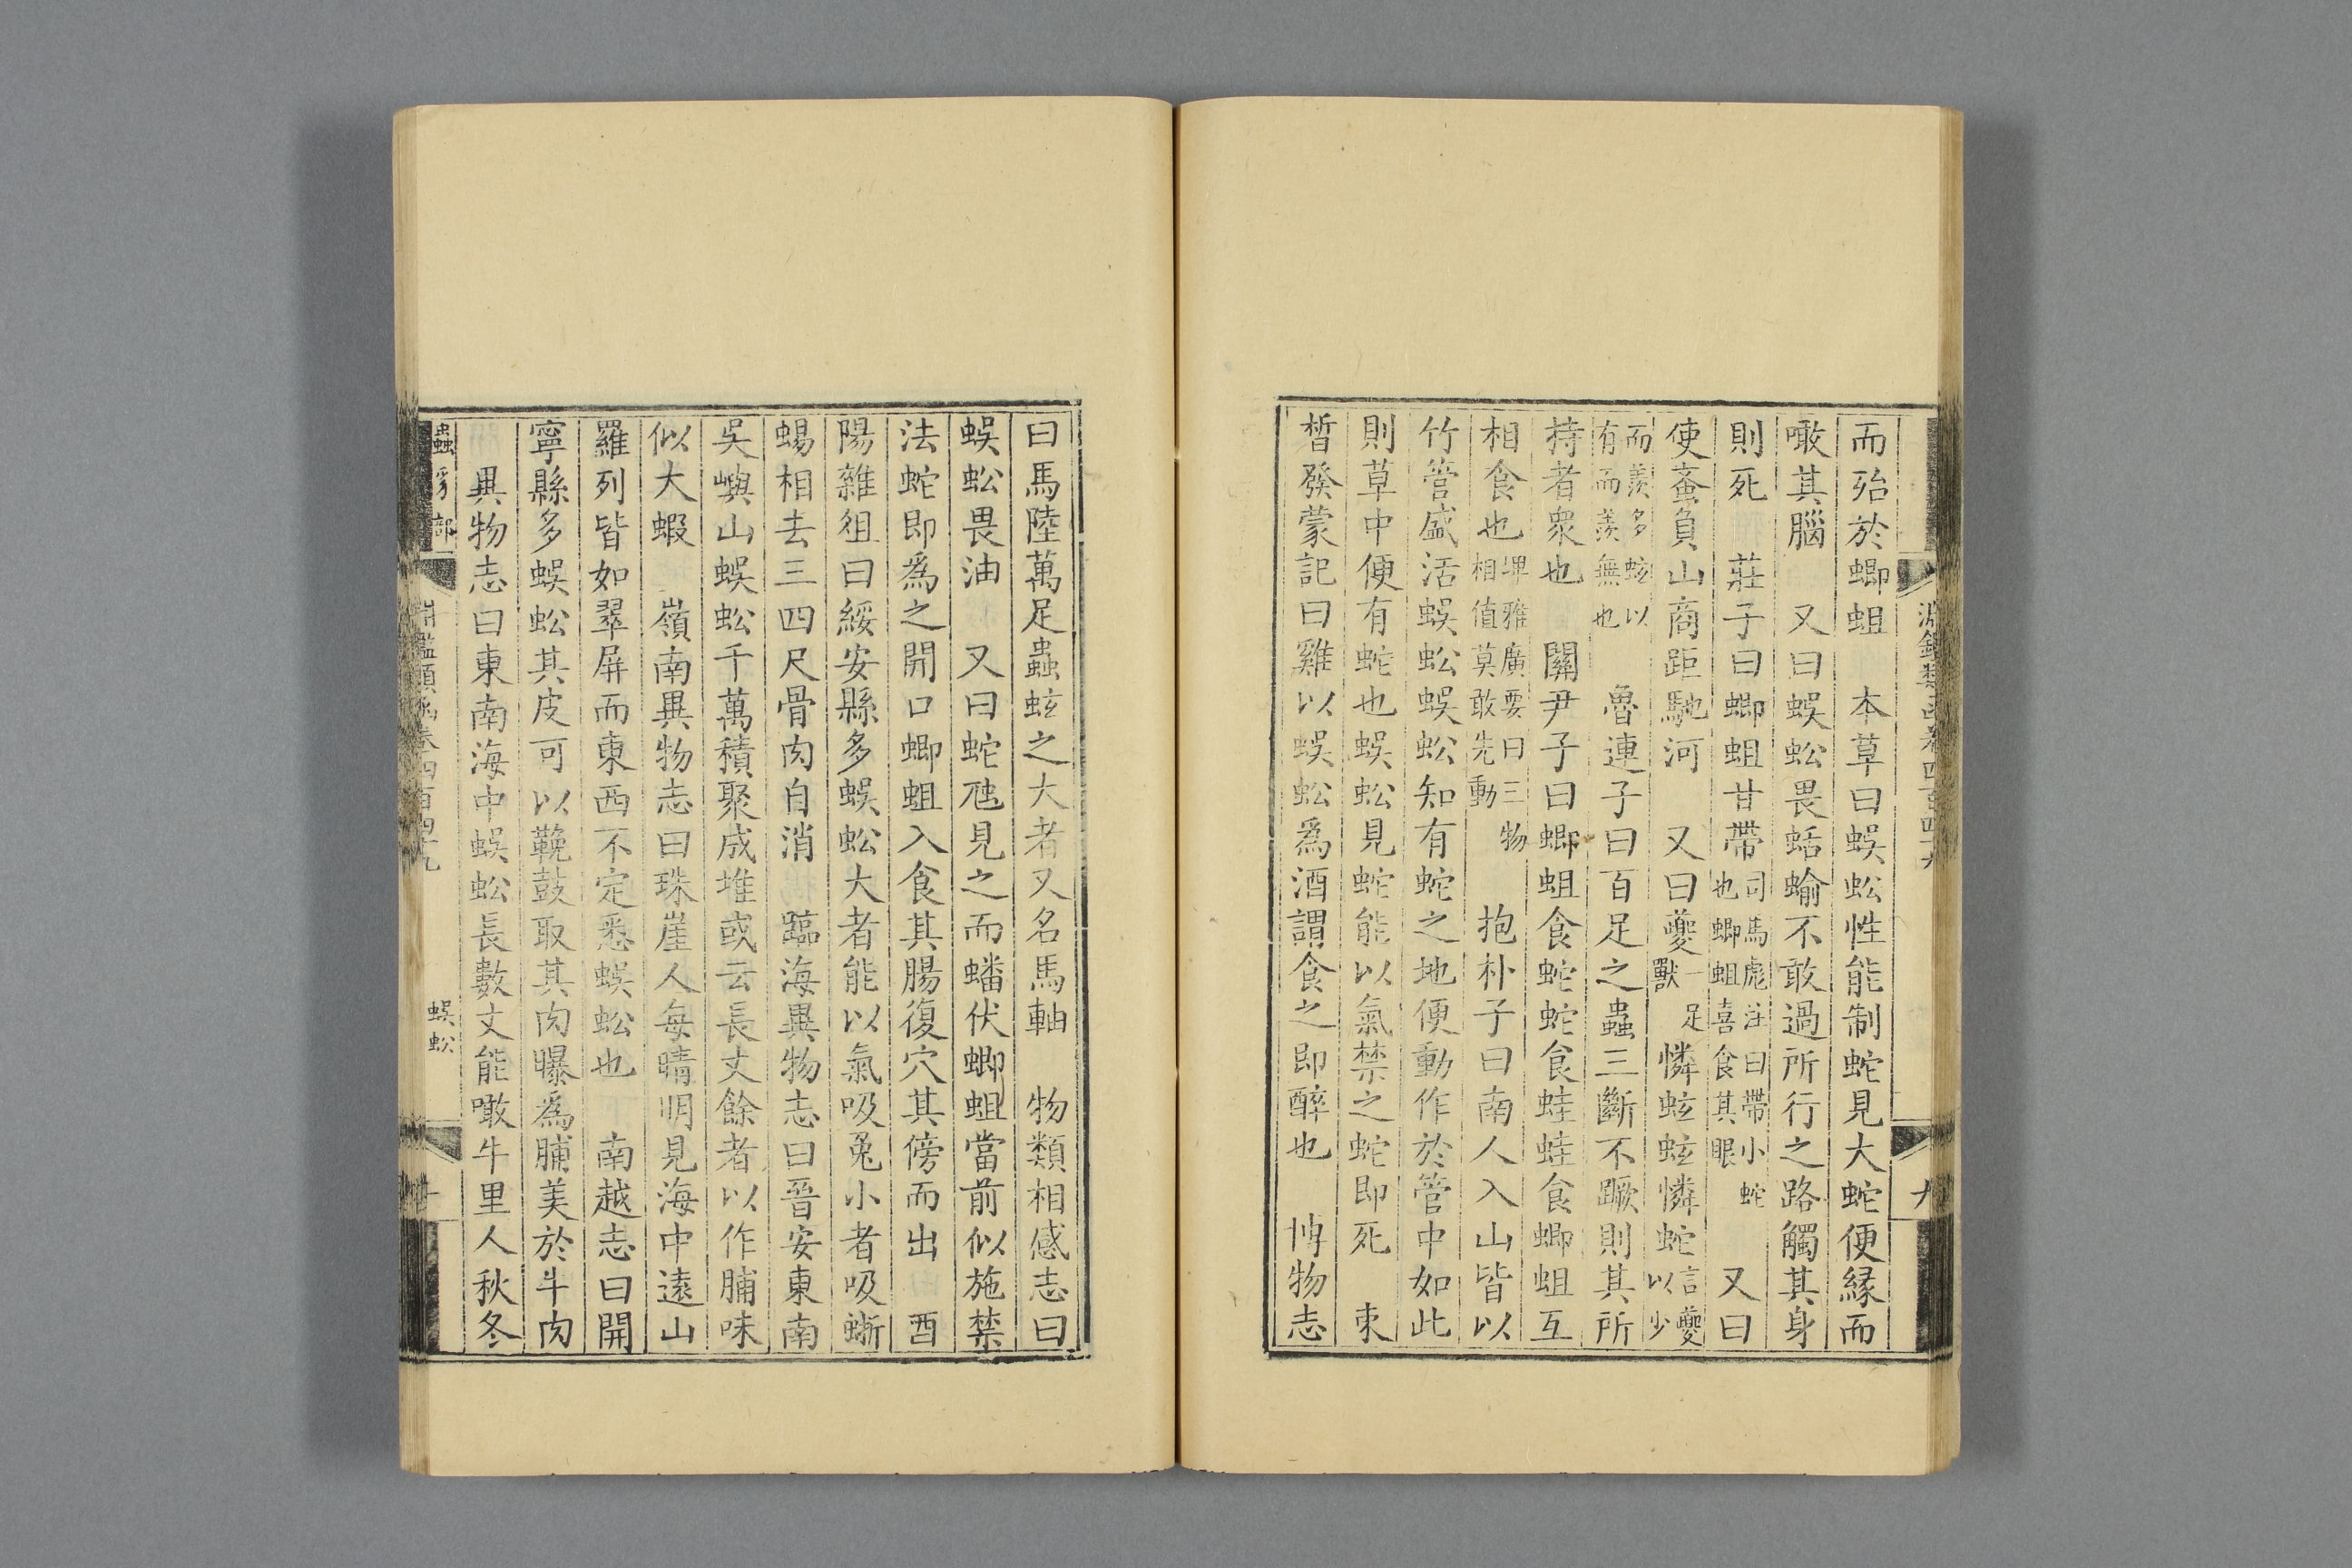 淵鑑類函卷四百四十九
九
而殆於蝍蛆　本草曰蜈蚣性能制蛇見大蛇便緣而
噉其腦　又曰蜈蚣畏蛞蝓不敢過所行之路觸其身
則死　莊子曰蝍蛆甘帶司馬彪注曰帶小蛇也蝍蛆喜食其眼　又曰
使蚉負山商距馳河　又曰夔一足獸憐蚿蚿憐蛇言夔以少
而羨多蚿以有而羨無也　魯連子曰百足之蟲三斷不蹶則其所
持者衆也　關尹子曰蝍蛆食蛇蛇食蛙蛙食蝍蛆互
相食也埤雅廣要曰三物相值莫敢先動　抱朴子曰南人入山皆以
竹管盛活蜈蚣蜈蚣知有蛇之地便動作於管中如此
則草中便有蛇也蜈蚣見蛇能以氣禁之蛇即死　束
晳發蒙記曰雞以蜈蚣爲酒謂食之即醉也　博物志
曰馬陸萬足蟲蚿之大者又名馬軸　物類相感志曰
蜈蚣畏油　又曰蛇虺見之而蟠伏蝍蛆當前似施禁
法蛇即爲之開口蝍蛆入食其腸復穴其傍而出　酉
陽雜徂曰綏安縣多蜈蚣大者能以氣吸兔小者吸蜥
蜴相去三四尺骨肉自消　臨海異物志曰晉安東南
吳嶼山蜈蚣千萬積聚成堆或云長丈餘者以作脯味
似大蝦　嶺南異物志曰珠崖人每晴明見海中遠山
羅列皆如翠屏而東西不定悉蜈蚣也　南越志曰開
寧縣多蜈蚣其皮可以鞔鼓取其肉曝爲脯美於牛肉
異物志曰東南海中蜈蚣長數丈能噉牛里人秋冬
蟲豸部
淵鑑類函卷四百四十九
蜈蚣